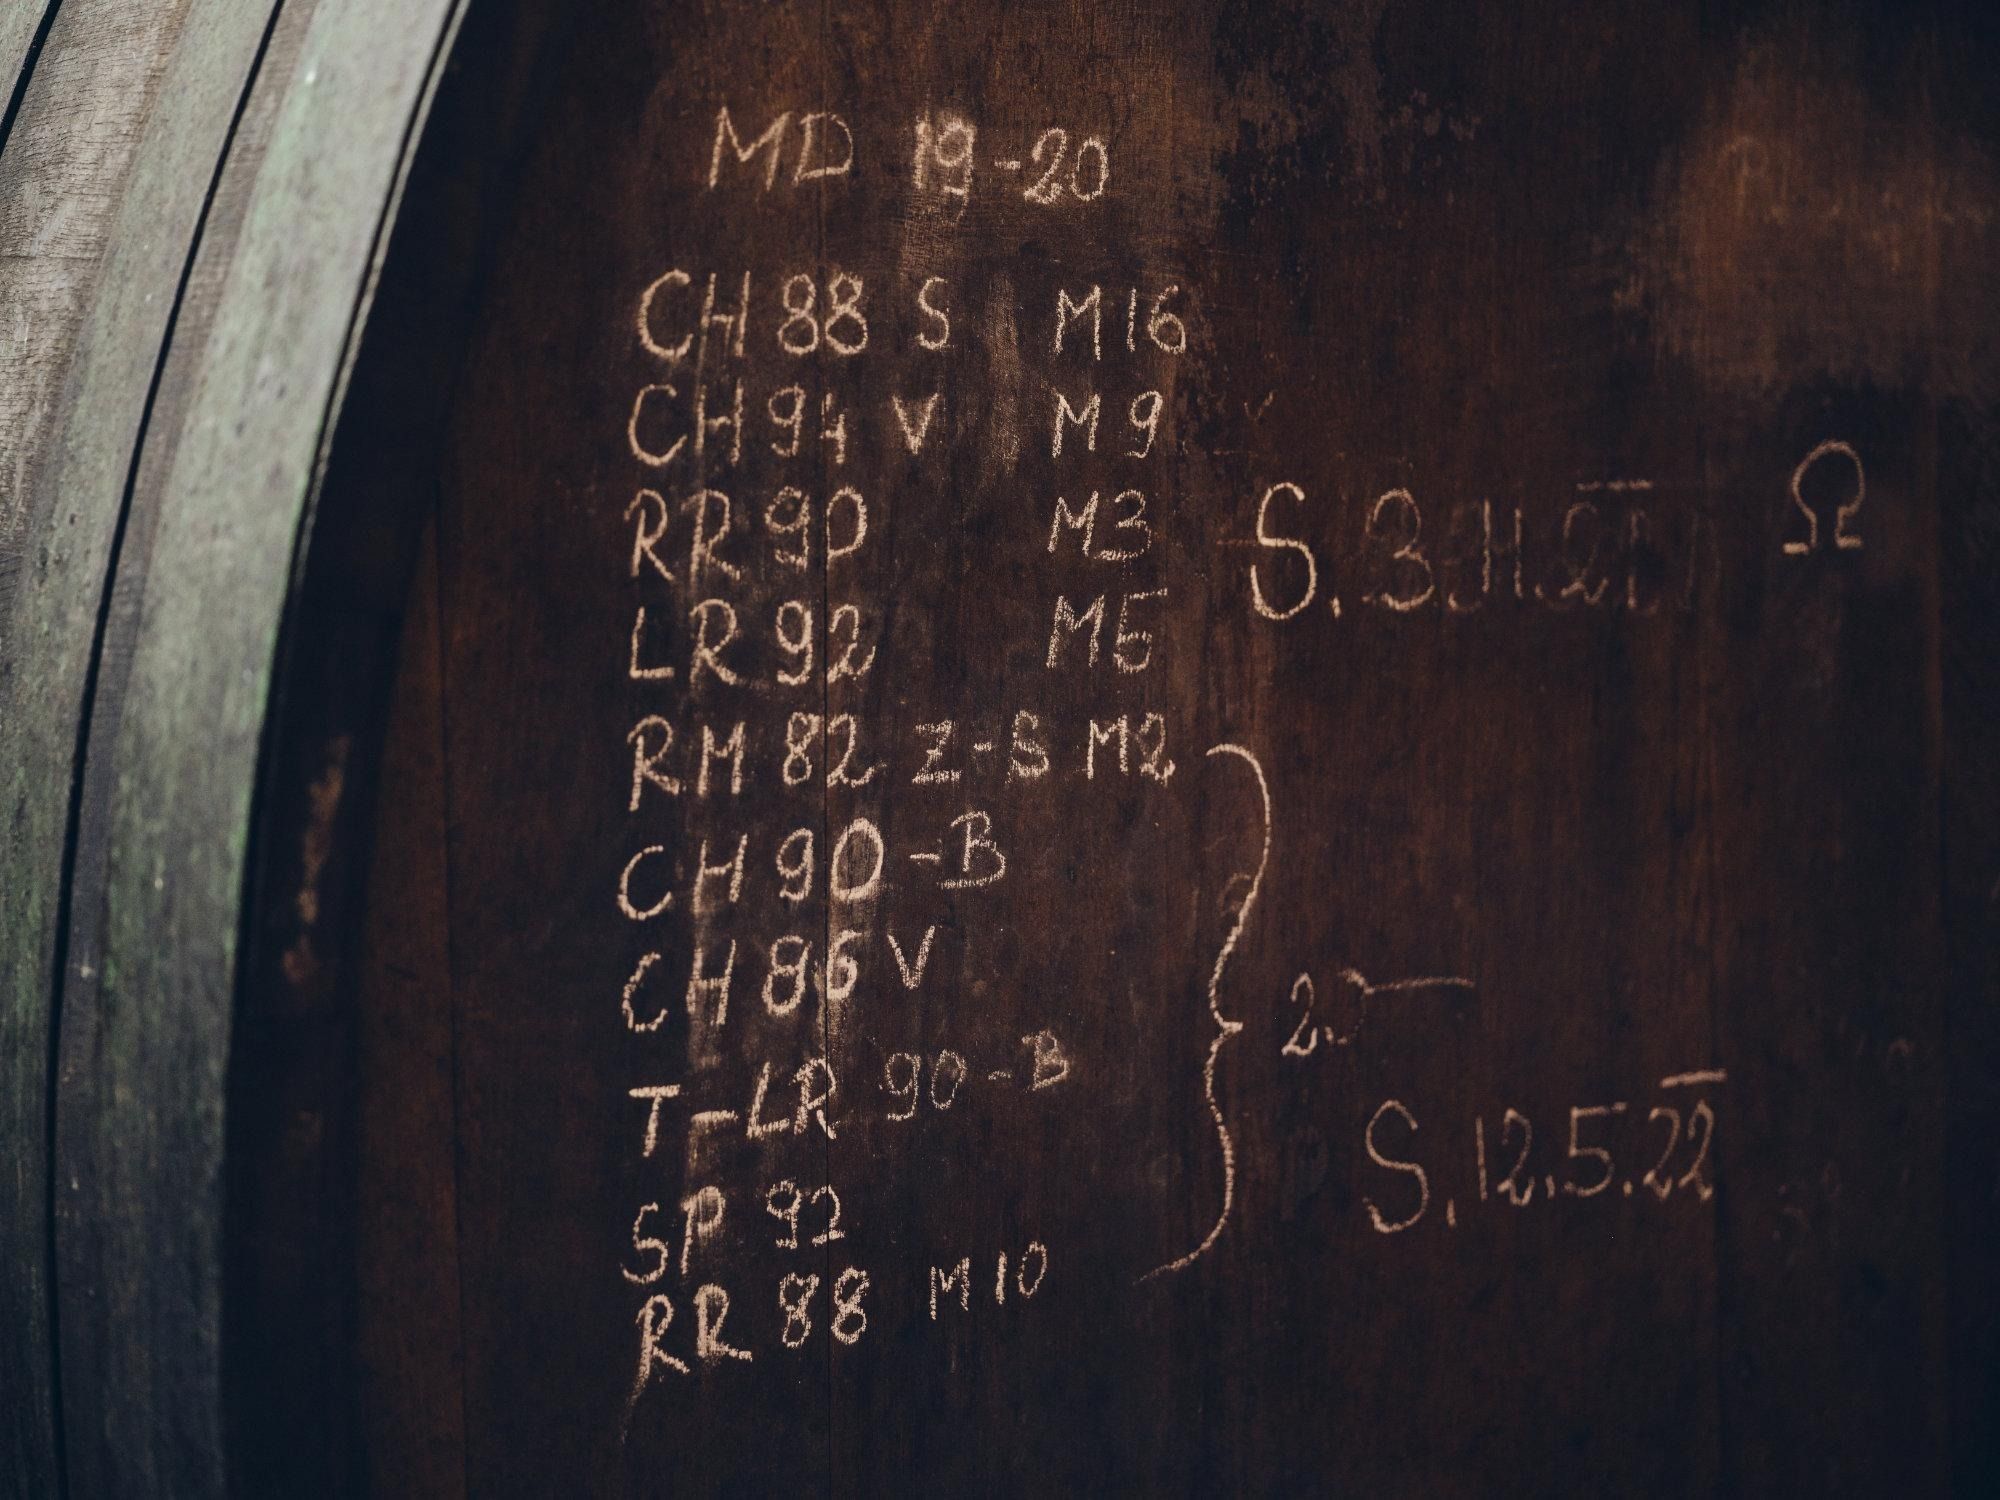 MD 19-20
CH 88 S M16
CH 94 V M9
RR 90 M3
Ω
S. 3.11.21
LR 92 M5
RM 82 Z-S M2
CH 90-B
CH 86 V
T-LR 90-B
S.12.5.22
SP 92
RR 88 M10